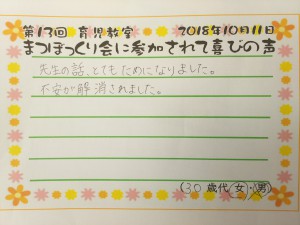 第13回 育児教室 2018年10月11日
まつぼっくり会に参加されて喜びの声
先生の話、とてもためになりました。
不安が解消されました。
(30歳代 女・男)